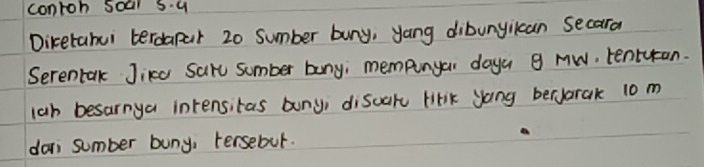 contoh soal 5.4
Diketahui terdapat 20 sumber bunyi yang dibunyikan secara
serentak Jika satu sumber bunyi mempunyai daya 8 MW. tentukan-
lah besarnya intensitas bunyi disuatu titik yang berjarak 10 m
dari sumber bunyi tersebut.